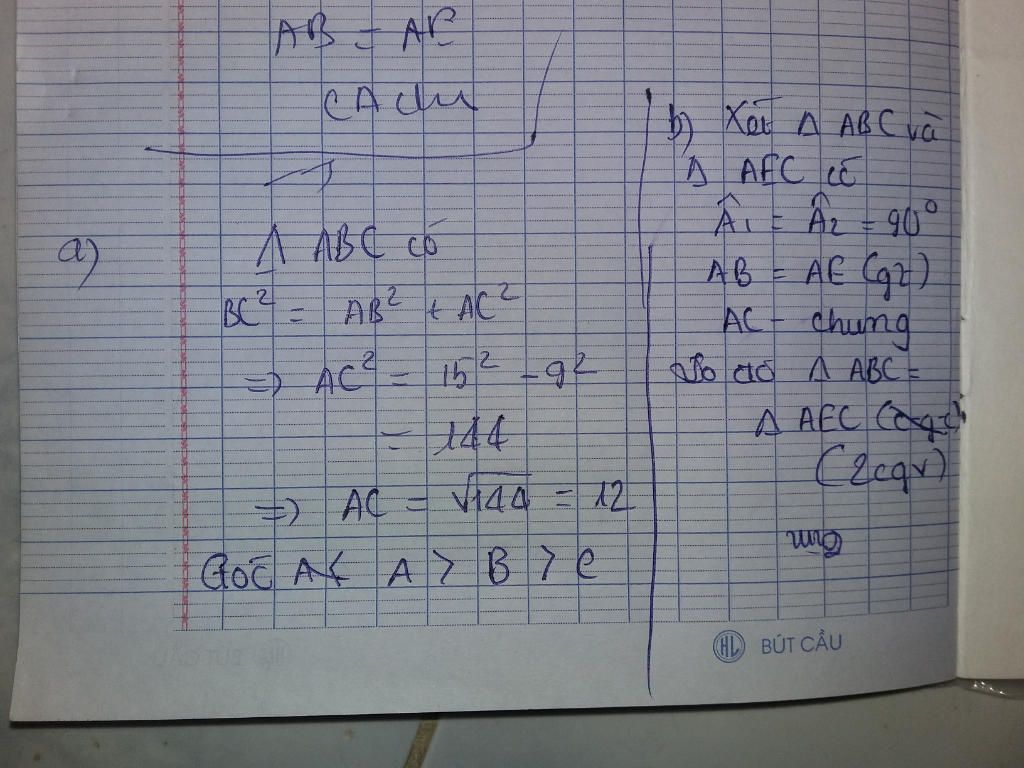 AB = AE
CA chu
a)
Δ ABC có
BC² = AB² + AC²
=> AC² = 15² - 9²
= 144
=> AC = √144 = 12
Góc A< A > B > C
b) Xét Δ ABC và
Δ AEC có
Â1 = Â2 = 90°
AB = AE (gt)
AC - chung
Do đó Δ ABC =
Δ AEC
(2cgv)
HL BÚT CẦU